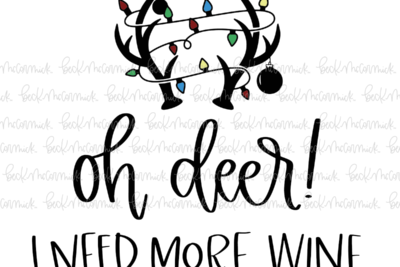 oh deer!
I NEED MORE WINE